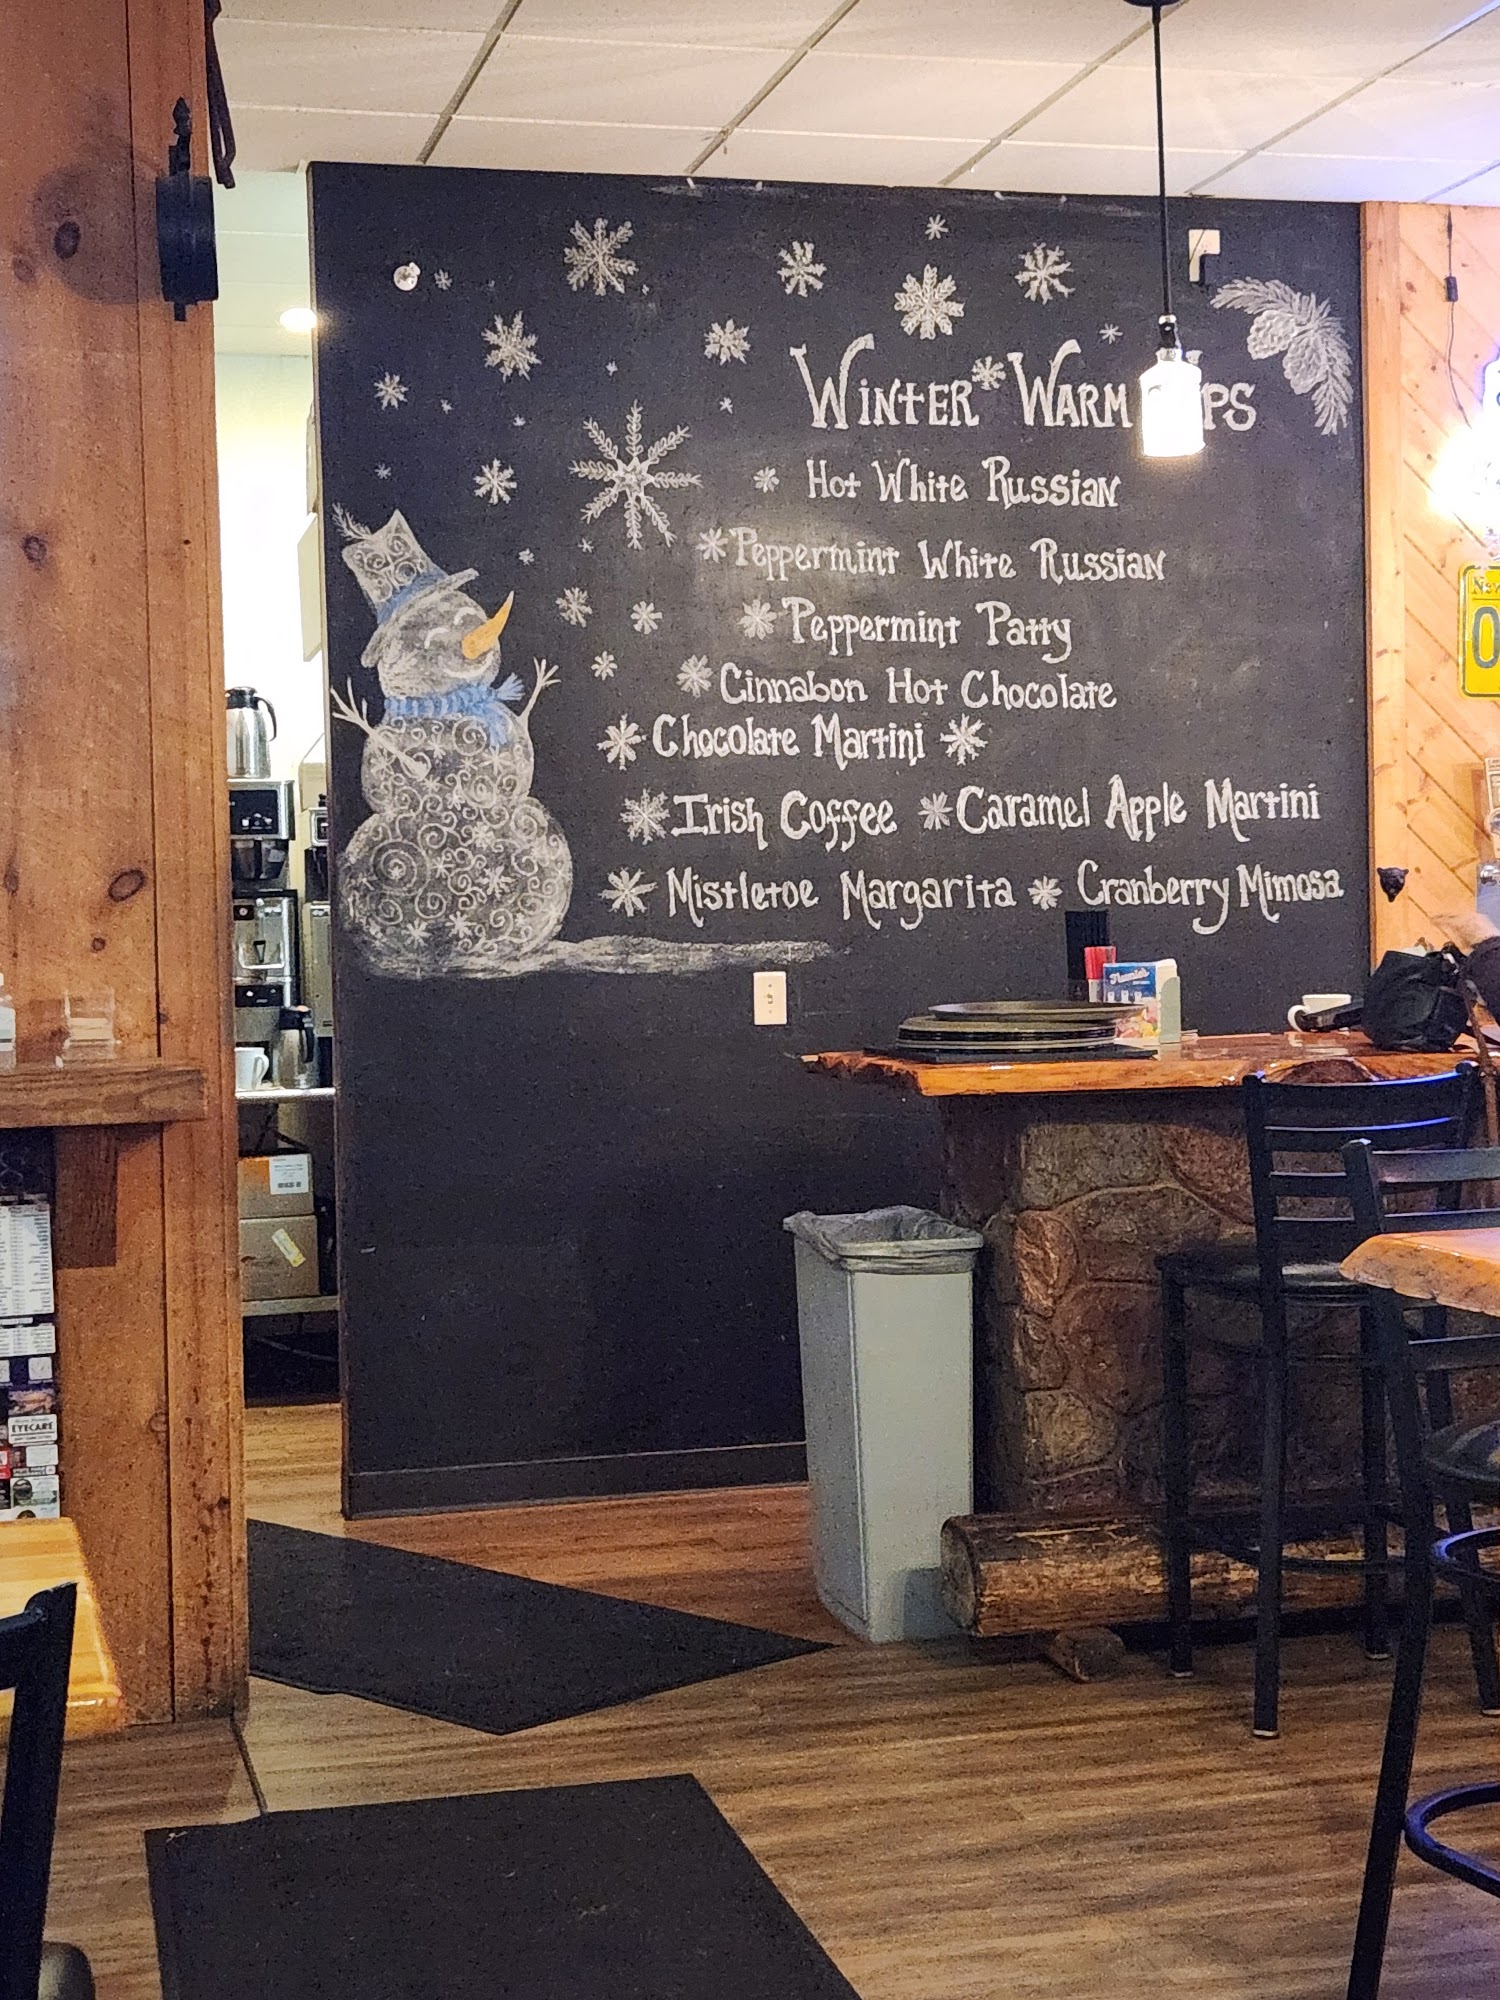 Winter Warm
Hot White Russian
Peppermint White Russian
Peppermint Patty
Cinnabon Hot Chocolate
Chocolate Martini
Irish Coffee Caramel Apple Martini
Mistletoe Margarita Cranberry Mimosa
EYECARE